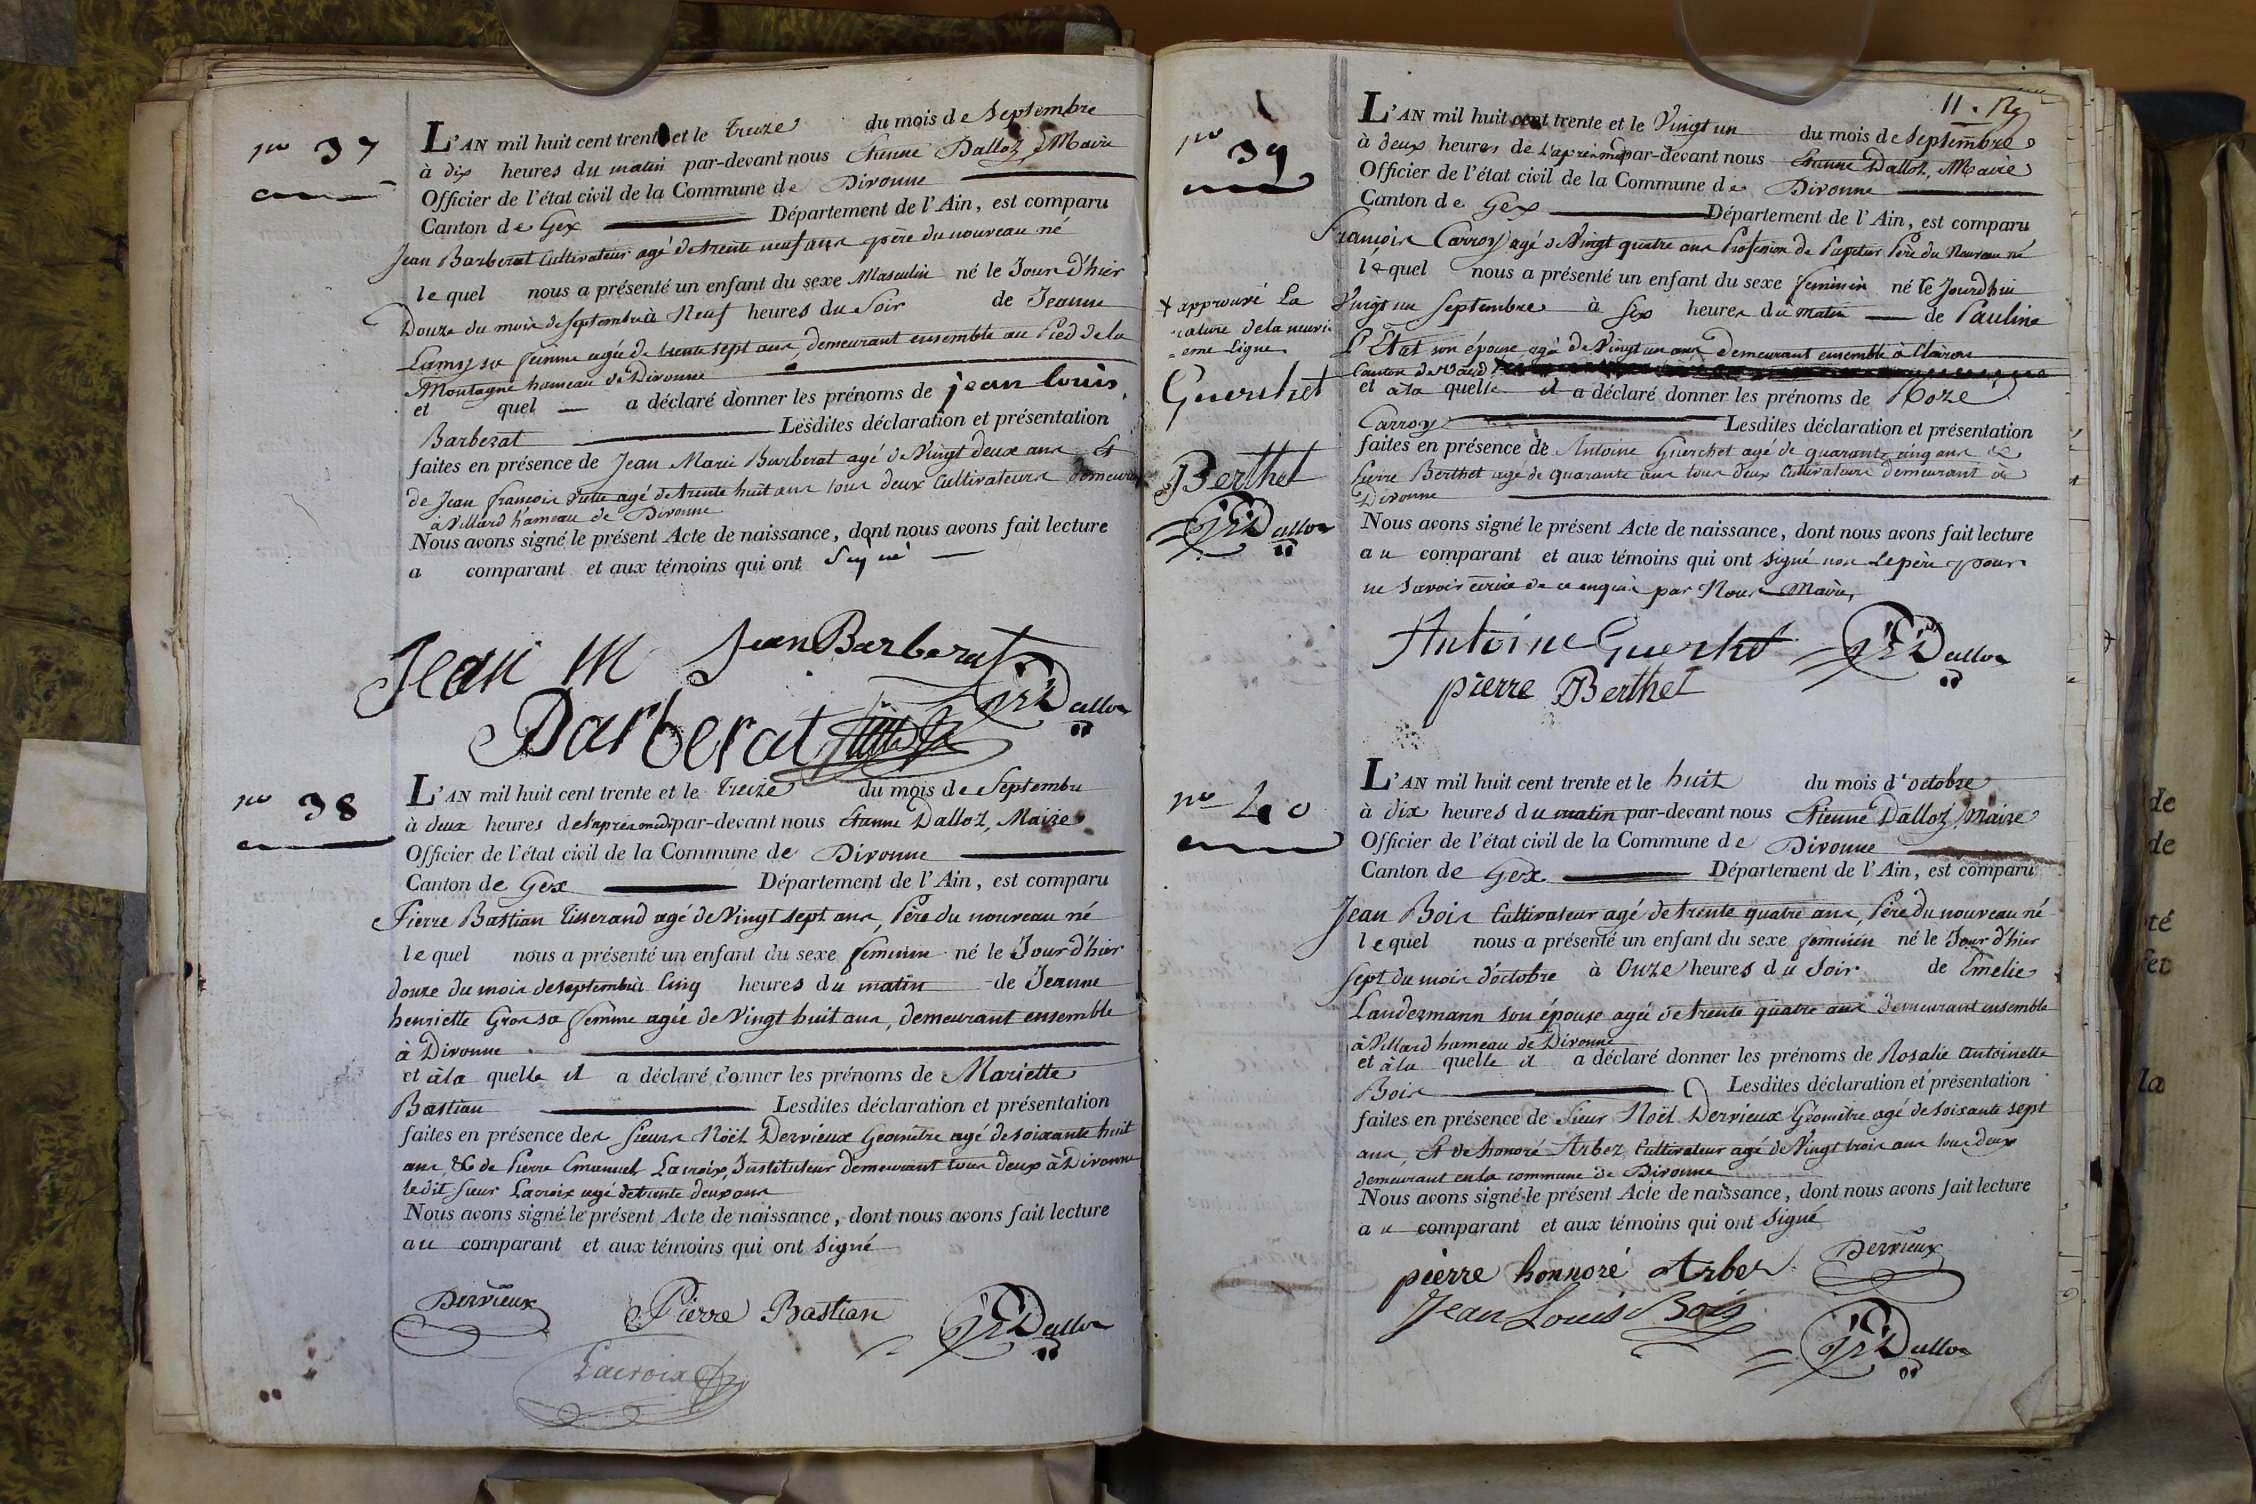 nº 37
L'AN mil huit cent trente et le Treize du mois de Septembre
à dix heures du matin par-devant nous Etienne Dalloz, Maire
Officier de l'état civil de la Commune de Divonne
Canton de Gex Département de l'Ain, est comparu
Jean Barberat Cultivateur agé de trente neuf ans père du nouveau né
lequel nous a présenté un enfant du sexe Masculin né le Jour d'hier
Douze du mois de septembre à Neuf heures du Soir de Jeanne
Lamy sa femme agée de trente sept ans, demeurant ensemble au Pied de la
Montagne hameau de Divonne
et quel a déclaré donner les prénoms de jean louis
Barberat Lesdites déclaration et présentation
faites en présence de Jean Marie Barberat agé de Vingt deux ans Et
de Jean françois agé de trente huit ans tous deux Cultivateurs demeurant
à Villard hameau de Divonne
Nous avons signé le présent Acte de naissance, dont nous avons fait lecture
a comparant et aux témoins qui ont Signé
Jean M Jean Barberat
Barberat Dalloz
nº 38
L'AN mil huit cent trente et le Treize du mois de Septembre
à deux heures de l'après midi par-devant nous Etienne Dalloz, Maire
Officier de l'état civil de la Commune de Divonne
Canton de Gex Département de l'Ain, est comparu
Pierre Bastian Tisserand agé de Vingt sept ans, Père du nouveau né
lequel nous a présenté un enfant du sexe feminin né le Jour d'hier
douze du mois de septembre à Cinq heures du matin de Jeanne
henriette Gros sa femme agée de Vingt huit ans, demeurant ensemble
à Divonne
et à la quelle il a déclaré donner les prénoms de Mariette
Bastian Lesdites déclaration et présentation
faites en présence des sieurs Noël Dervieux Géomètre agé de soixante huit
ans, & de Pierre Emanuel Lacroix, Instituteur demeurant tous deux à Divonne
le dit sieur Lacroix agé de trente deux ans
Nous avons signé le présent Acte de naissance, dont nous avons fait lecture
au comparant et aux témoins qui ont signé
Dervieux Pierre Bastian Dalloz
Lacroix
11.
nº 39
L'AN mil huit cent trente et le Vingt un du mois de Septembre
à deux heures de l'après midi par-devant nous Etienne Dalloz, Maire
Officier de l'état civil de la Commune de Divonne
Canton de Gex Département de l'Ain, est comparu
François Carroy agé de Vingt quatre ans Profession de Papetier Père du Nouveau né
lequel nous a présenté un enfant du sexe feminin né le Jourdhui
Vingt un Septembre à Six heures du matin de Pauline
L'Etat son épouse agée de Vingt un ans demeurant ensemble à Clairon
Canton de Vaud
et à la quelle il a déclaré donner les prénoms de Roze
Carroy Lesdites déclaration et présentation
faites en présence de Antoine Guerchet agé de quarante cinq ans &
Pierre Berthet agé de quarante ans tous deux Cultivateurs demeurant à
Divonne
Nous avons signé le présent Acte de naissance, dont nous avons fait lecture
au comparant et aux témoins qui ont signé non le père pour
ne savoir écrire de ce enquis par Nous Maire,
approuvé la
rature de la neuvi
=eme Ligne
Guerchet
Berthet
Dalloz
Antoine Guerchet Dalloz
pierre Berthet
nº 40
L'AN mil huit cent trente et le huit du mois d'octobre
à dix heures du matin par-devant nous Etienne Dalloz, Maire
Officier de l'état civil de la Commune de Divonne
Canton de Gex Département de l'Ain, est comparu
Jean Bois Cultivateur agé de trente quatre ans, Père du nouveau né
lequel nous a présenté un enfant du sexe feminin né le Jour d'hier
sept du mois d'octobre à Onze heures du Soir de Emelie
Landezmann son épouse agée de trente quatre ans demeurant ensemble
à Villard hameau de Divonne
et à la quelle il a déclaré donner les prénoms de Rosalie Antoinette
Bois Lesdites déclaration et présentation
faites en présence de sieur Noël Dervieux Géomètre agé de soixante sept
ans, Et de honoré Arbez Cultivateur agé de Vingt trois ans tous deux
demeurant en la commune de Divonne
Nous avons signé le présent Acte de naissance, dont nous avons fait lecture
au comparant et aux témoins qui ont signé
pierre honnoré Arbez Dervieux
Jean Louis Bois
Dalloz
de
de
té
et
la